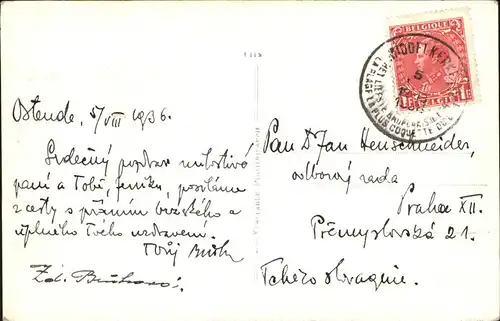 Ostende, 5/VIII 1936.
Srdečný pozdrav milostivá
paní a Tobě, posíláme
z cesty s přáním brzského a
úplného Tvého uzdravení.
Tvůj
Zd.
BELGIQUE
MIDDELKERKE
5
LA PLAGE LA PLUS COQUETTE DU
1F
BELGIE
Pan Dr Jan Henschneider,
odborový rada
Praha XII.
Přemyslovská 21.
Tchécoslovaquie.